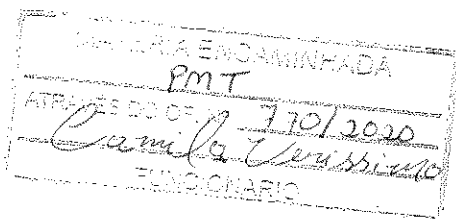 MATÉRIA ENCAMINHADA
PMT
ATRAVÉS DO OF. 770/2020
Camila Verissimo
FUNCIONARIO